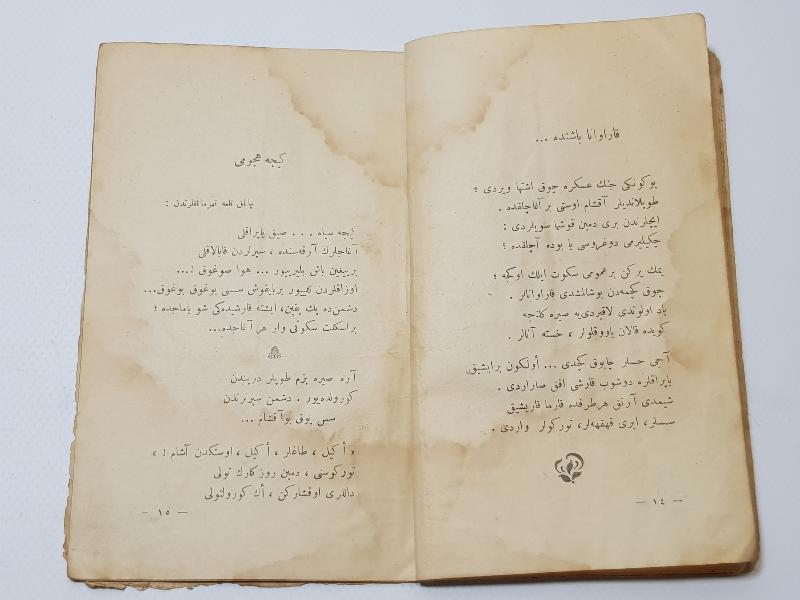 قاراوانا باشنده ...
بوكونكى جنك عسكره چوق اشتها ويردى ؛
طوپلانديلر آقشام اوستى بر آغاجلقده .
ايچلرندن برى دمين قوشما سويلردى :
چكيليرمى دوغروسى يا بوده آچلقده ؛
يمك يركن بر عمومى سكوت ايلك اوكجه ؛
چوق كچمه‌دن بوشالمشدى قاراوانالر .
ياد اولوندى لاقيردى‌يه صيره كلنجه
كويده قالان ياووقلولر ، خسته آنالر .
آجى حسلر چابوق كچدى ... أولكون برايشيق
ياپراقلره دوشوب قارشى افق صاراردى .
شيمدى آرتق هر طرفده قارما قاريشيق
سسلر ، ايرى قهقهه‌لر ، توركولر واردى .
— ١٤ —
كيجه هجومى
چاناق قلعه قهرمانلقلرندن :
كيجه سياه . . . صيق ياپراقلى
آغاجلرك آرقه‌سنده ، سپرلردن قابالاقلى
بر ييغين باش بليرييور ... هوا صوغوق !...
اوزاقلردن كلييور بر بايغوش سسى بوغوق بوغوق...
دشمن‌ده پك يقين، ايشته قارشيده‌كى شو ياماجده ؛
بر اسكلت سكوتى وار هر آغاجده...
آره صيره بزم طوپلر دريندن
كورولده‌يور . دشمن سپرلرندن
سس يوق بو آقشام ...
« أكيل ، طاغلر ، أكيل ، اوستكدن آشام ! »
توركوسنى ، دمين روزكارك تولى
داللرى اوقشاركن ، أڭ كورولتولى
— ١٥ —